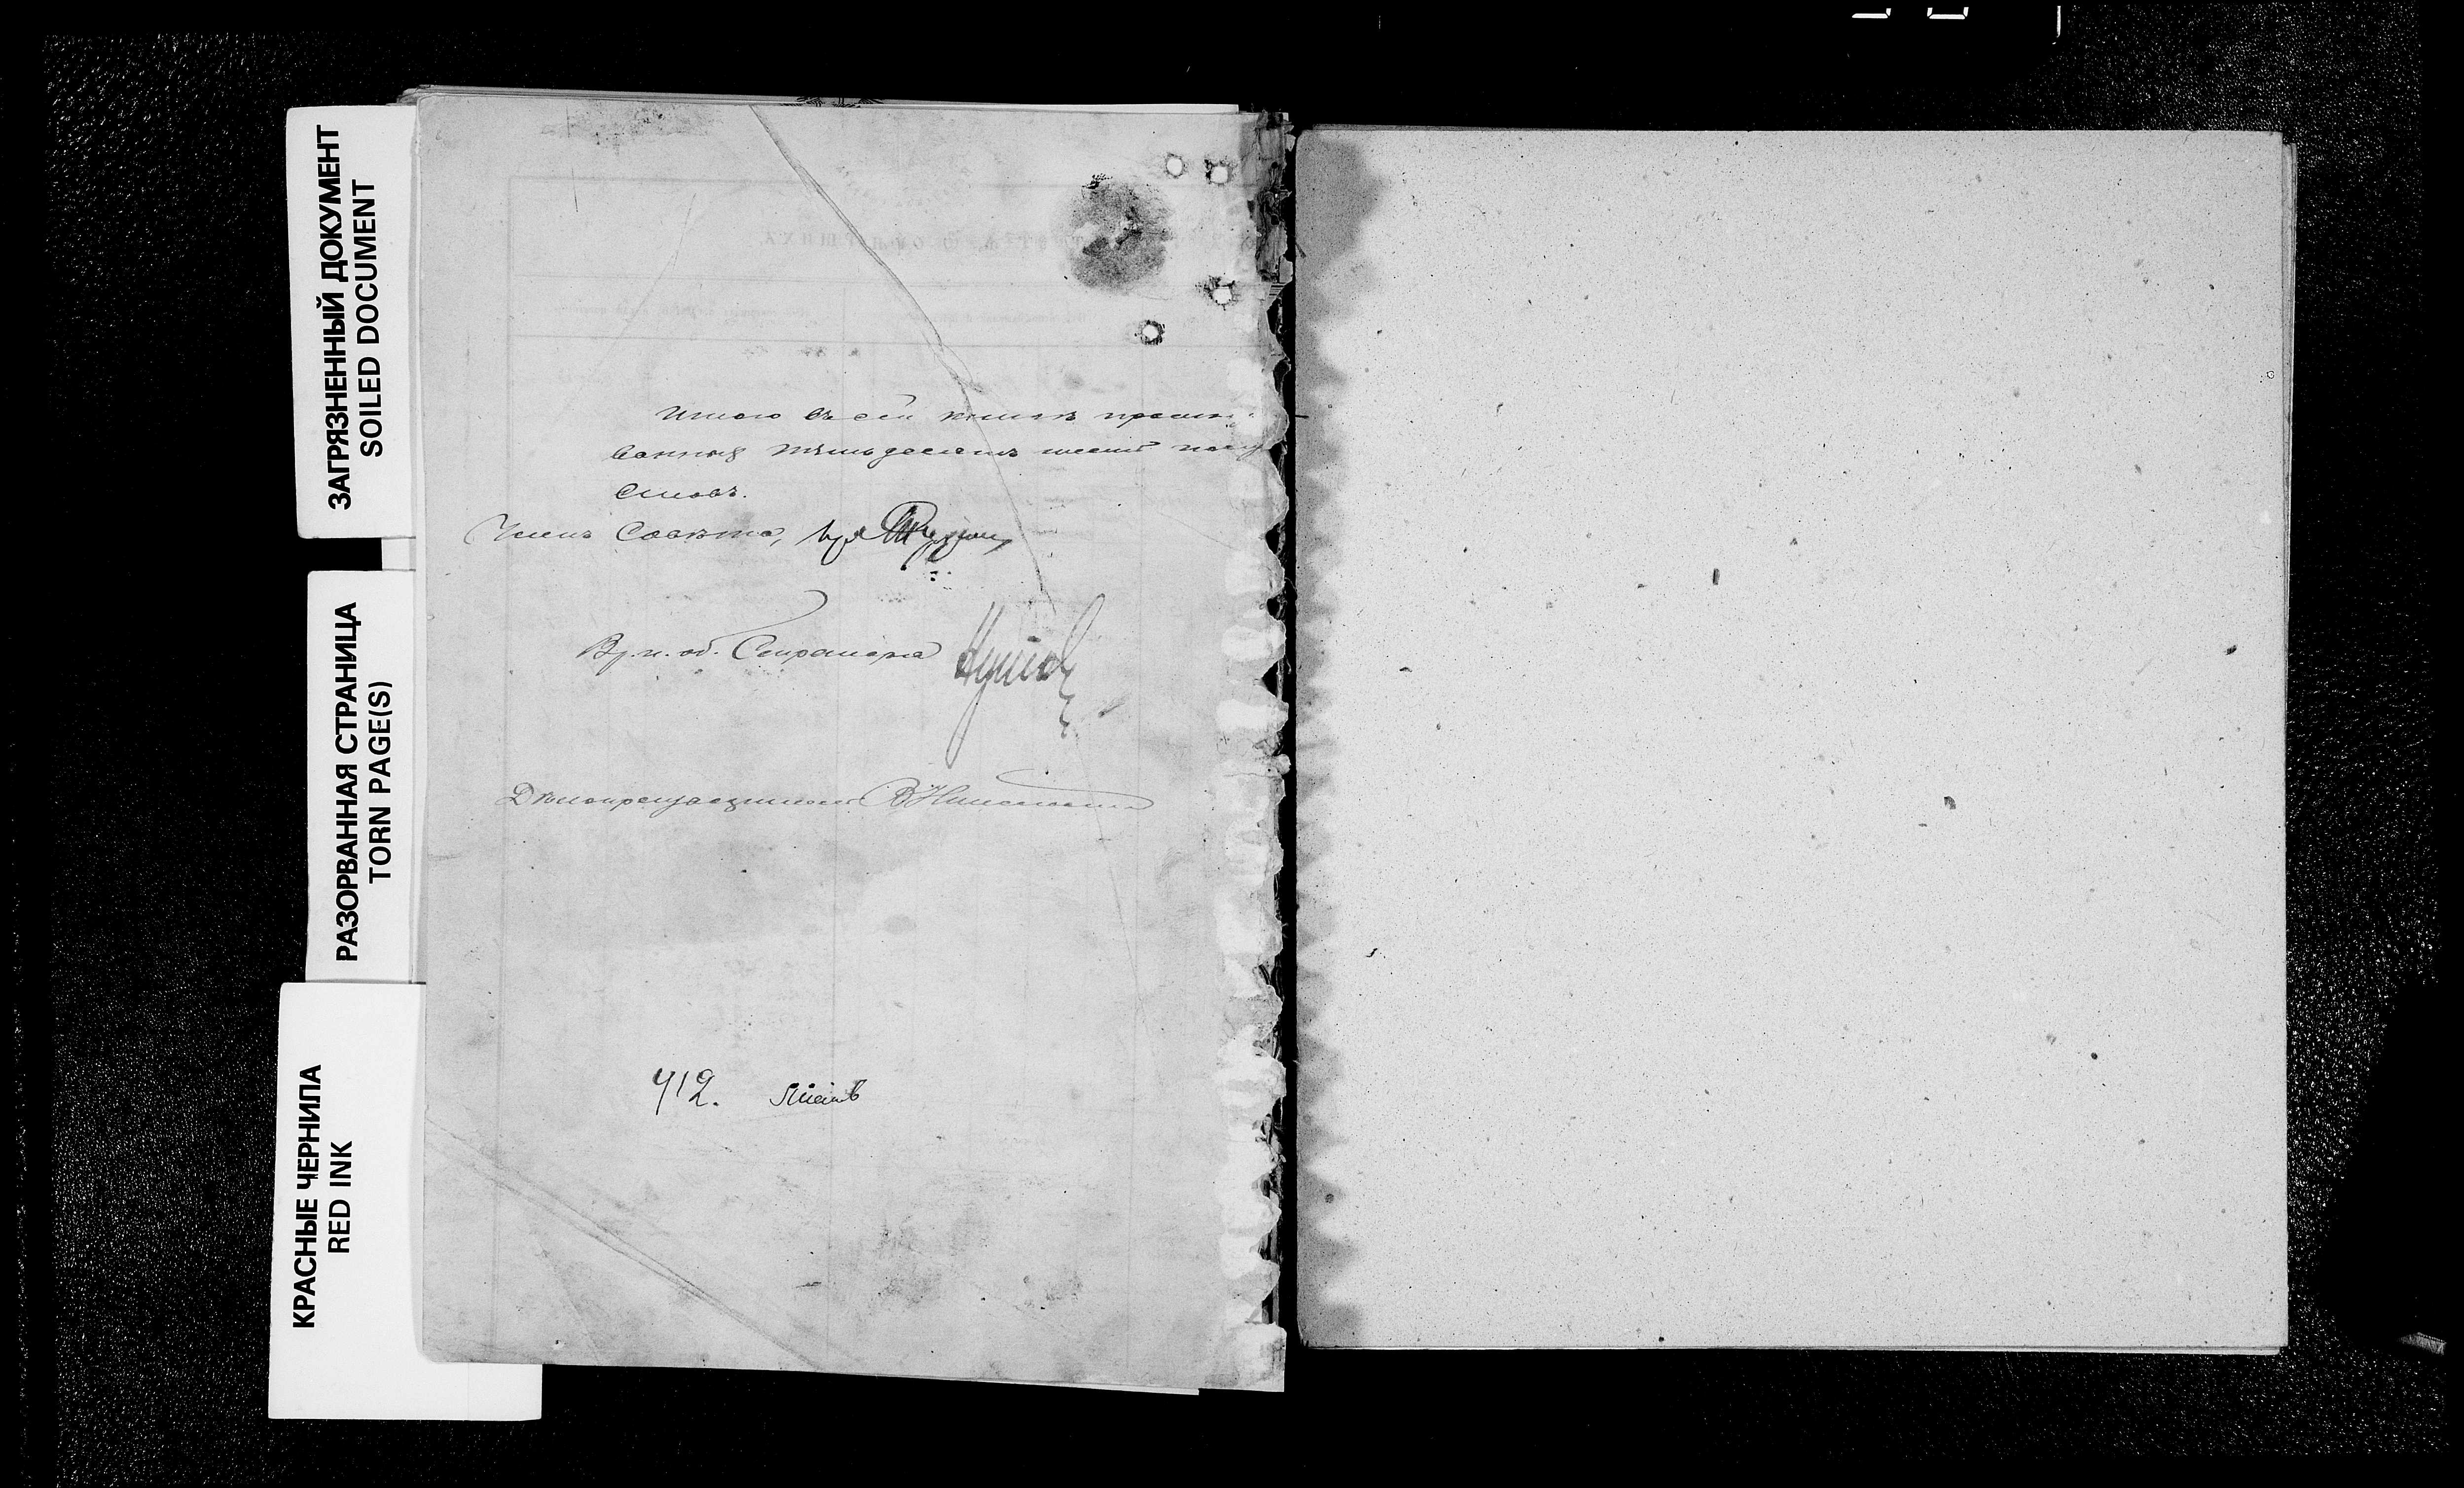 ЗАГРЯЗНЕННЫЙ ДОКУМЕНТ
SOILED DOCUMENT
РАЗОРВАННАЯ СТРАНИЦА
TORN PAGE(S)
КРАСНЫЕ ЧЕРНИЛА
RED INK
Итого въ сей книгѣ прошну
ванныхъ пятьдесятъ шесть полу
листовъ.
Членъ Совѣта,
Вр. и. об. Секретаря
Дѣлопроизводитель
412. листов